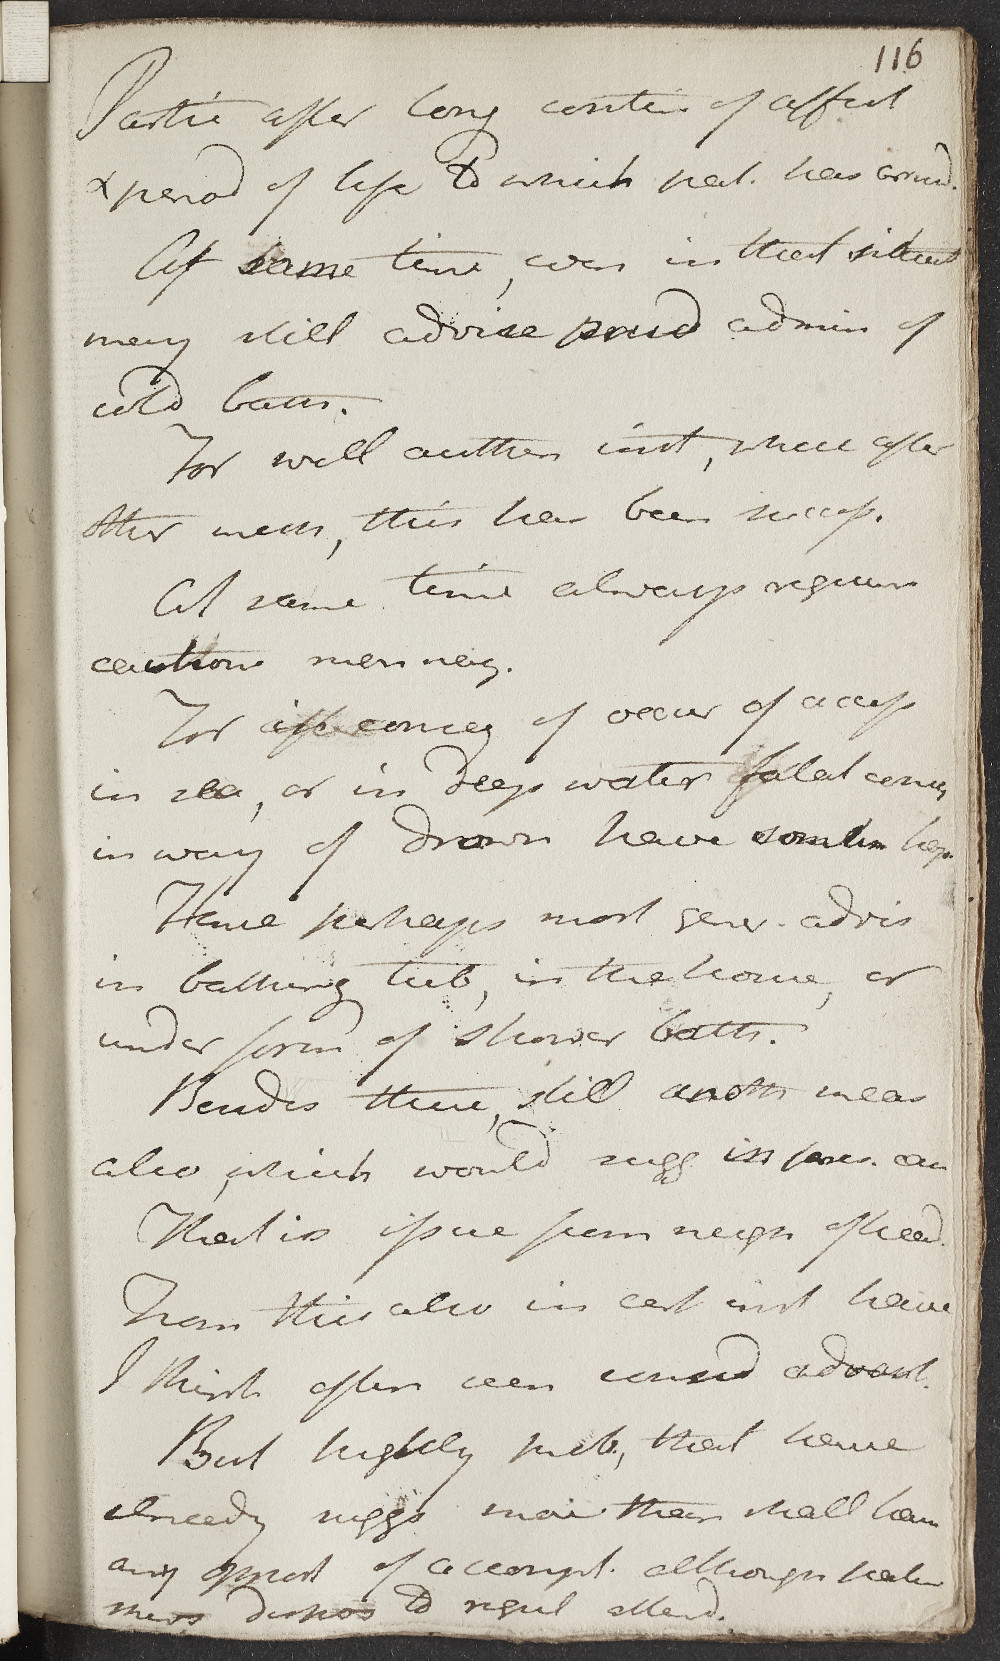 116
Partic after long contin of affect
& period of life to which pat. has arrivd.
At same time, even in that situat
may still advise prud admin of
cold bath.
For well authen inst, where after
other means, this has been success.
At same time always requires
cautious manag.
For conseq of occur of access
in sea, or in deep water fatal conseq
in way of drown have somtim hap.
Hence perhaps most gener. advis
in bathing tub, in the house, or
under form of shower bath.
Besides these, still anoth means
also, which would sugg in pres. case
That is issue from neigh of head.
From this also in cert inst have
I think often seen consid advant.
But highly prob, that have
already suggs more than shall have
any opport of accompl. although patien
shews dispos to regul attend.